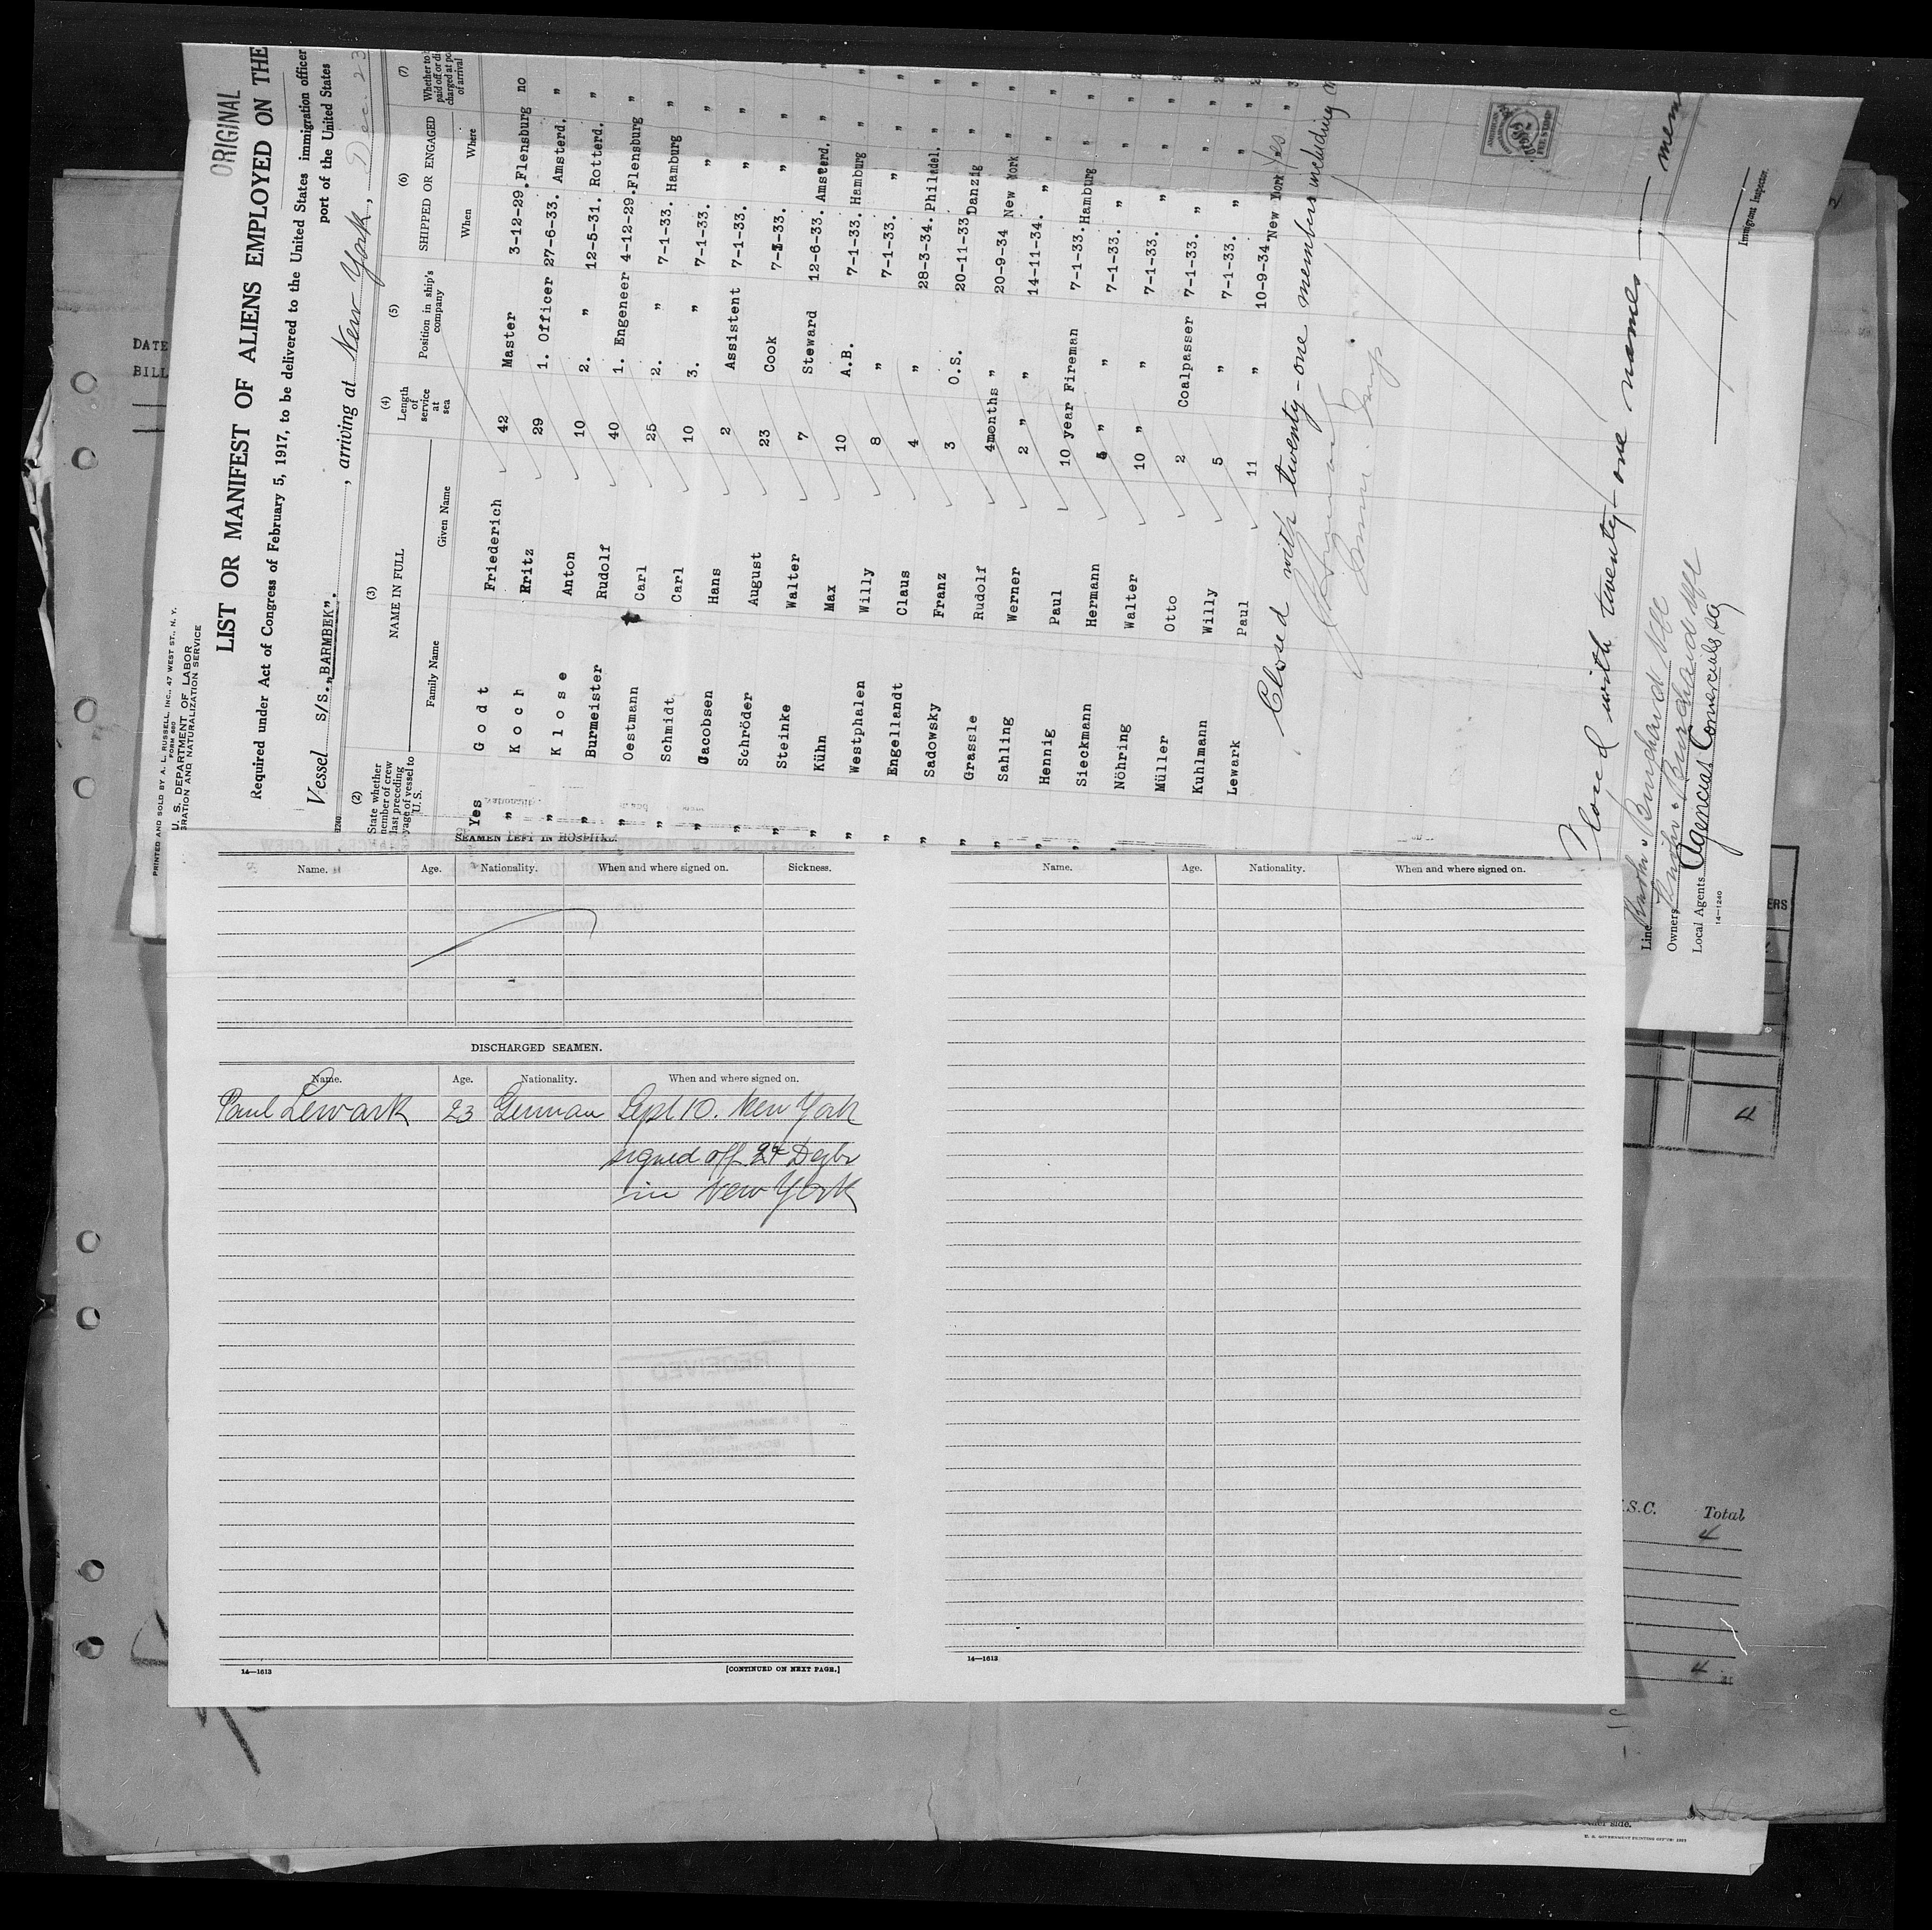 ORIGINAL
PRINTED AND SOLD BY A. L. RUSSELL, INC., 47 WEST ST., N. Y.
FORM 680
U. S. DEPARTMENT OF LABOR
GRATION AND NATURALIZATION SERVICE
LIST OR MANIFEST OF ALIENS EMPLOYED ON THE
Required under Act of Congress of February 5, 1917, to be delivered to the United States immigration officer
port of the United States
Vessel S/S. „BARMBEK". , arriving at New York, Dec. 23
(2) (3) (4) (5) (6) (7)
State whether member of crew last preceding voyage of vessel to U. S. NAME IN FULL Length of service at sea Position in ship's company SHIPPED OR ENGAGED Whether to paid off or di charged at po of arrival
Family Name Given Name When Where
Yes Godt Friederich 42 Master 3-12-29. Flensburg no
„ Koch Fritz 29 1. Officer 27-6-33. Amsterd. „
„ Klose Anton 10 2. „ 12-5-31. Rotterd. „
„ Burmeister Rudolf 40 1. Engeneer 4-12-29. Flensburg „
„ Oestmann Carl 25 2. „ 7-1-33. Hamburg „
„ Schmidt Carl 10 3. „ 7-1-33. „ „
„ Jacobsen Hans 2 Assistent 7-1-33. „ „
„ Schröder August 23 Cook 7-1-33. „ „
„ Steinke Walter 7 Steward 12-6-33. Amsterd. „
„ Kühn Max 10 A.B. 7-1-33. Hamburg „
„ Westphalen Willy 8 „ 7-1-33. „ „
„ Engellandt Claus 4 „ 28-3-34. Philadel. „
„ Sadowsky Franz 3 O.S. 20-11-33 Danzig „
„ Grassle Rudolf 4months „ 20-9-34 New York „
„ Sahling Werner 2 „ „ 14-11-34. „ „
„ Hennig Paul 10 year Fireman 7-1-33. Hamburg „
„ Sieckmann Hermann 5 „ „ 7-1-33. „ „
Nöhring Walter 10 „ „ 7-1-33. „ „
Müller Otto 2 Coalpasser 7-1-33. „ „
Kuhlmann Willy 5 „ 7-1-33. „ „
Lewark Paul 11 „ 10-9-34. New York Yes
Closed with twenty-one members including
Closed with twenty-one names — mem
Immigrant Inspector.
Line
Owners
Local Agents Agencias Comerciales SA
14—1240
SEAMEN LEFT IN HOSPITAL
Name. Age. Nationality. When and where signed on. Sickness.
DISCHARGED SEAMEN.
Name. Age. Nationality. When and where signed on.
Paul Lewark 23 German Sept 10. New York
signed off 24 Dezbr
in New York
14—1613
[CONTINUED ON NEXT PAGE.]
Name. Age. Nationality. When and where signed on.
14—1613
DATE
BILL
ERS
4
.S.C. Total
4
4
other side.